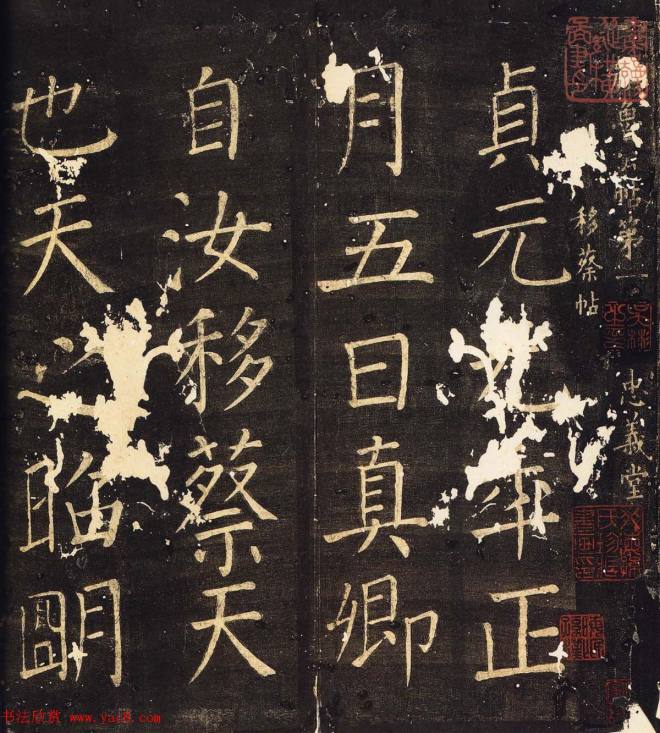 魯公帖第一 忠義堂
移蔡帖
貞元年正
月五日真卿
自汝移蔡天
也天之昭朙
书法欣赏 www.yac8.com